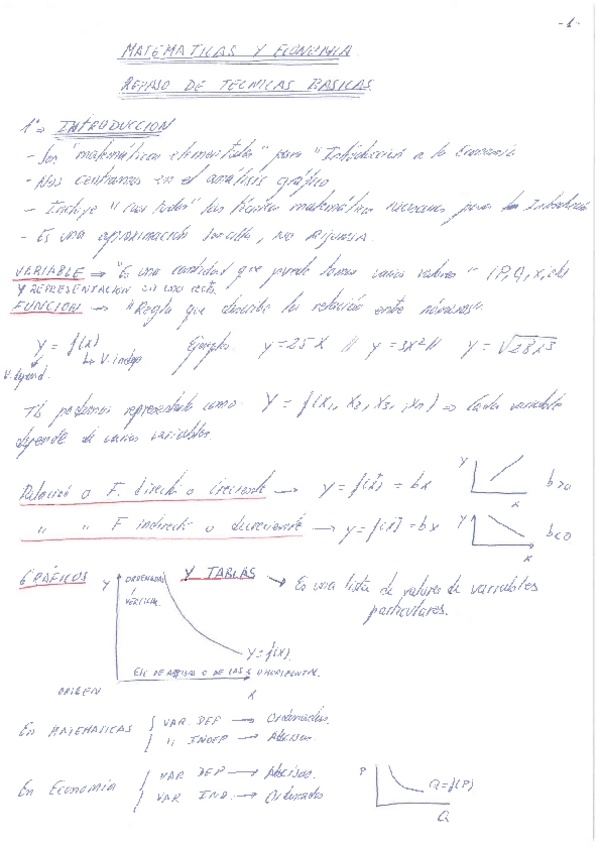 -1-
MATEMATICAS Y ECONOMIA.
REPASO DE TECNICAS BASICAS.
1º⇒ INTRODUCCION
- Son "matemáticas elementales" para "Introducción a la Economía
- Nos centramos en el análisis gráfico
- Incluye "casi todas" las técnicas matemáticas necesarias para la Introducció
- Es una aproximación sencilla, NO RIGUROSA.
VARIABLE ⇒ "Es una cantidad que puede tomar varios valores" (P, Q, X, etc)
Y REPRESENTACION en una recta.
FUNCION → "Regla que describe la relación entre números".
Y = f(x) Ejemplo: y = 25X // y = 3X² // y = √28x³
V. depend. ↳ V. indep
Tb podemos representarlo como: Y = f(X1, X2, X3, ,Xn) ⇒ Cada variable
depende de varias variables.
Relació o F. directa o Creciente → y = f(x) = bx Y X b>0
" " F indirecta o decreciente → y = f(x) = bx Y X b<0
GRÁFICOS Y TABLAS → Es una lista de valores de variables
particulares.
Y ORDENADAS
VERTICAL
Y = f(X).
EJE DE ABCISAS O DE LAS X O HORIZONTAL.
ORIGEN X
En MATEMATICAS { VAR. DEP → Ordenadas.
" INDEP → Abcisas.
En Economía { VAR DEP → Abcisas.
VAR IND. → Ordenadas
P Q=f(P)
Q